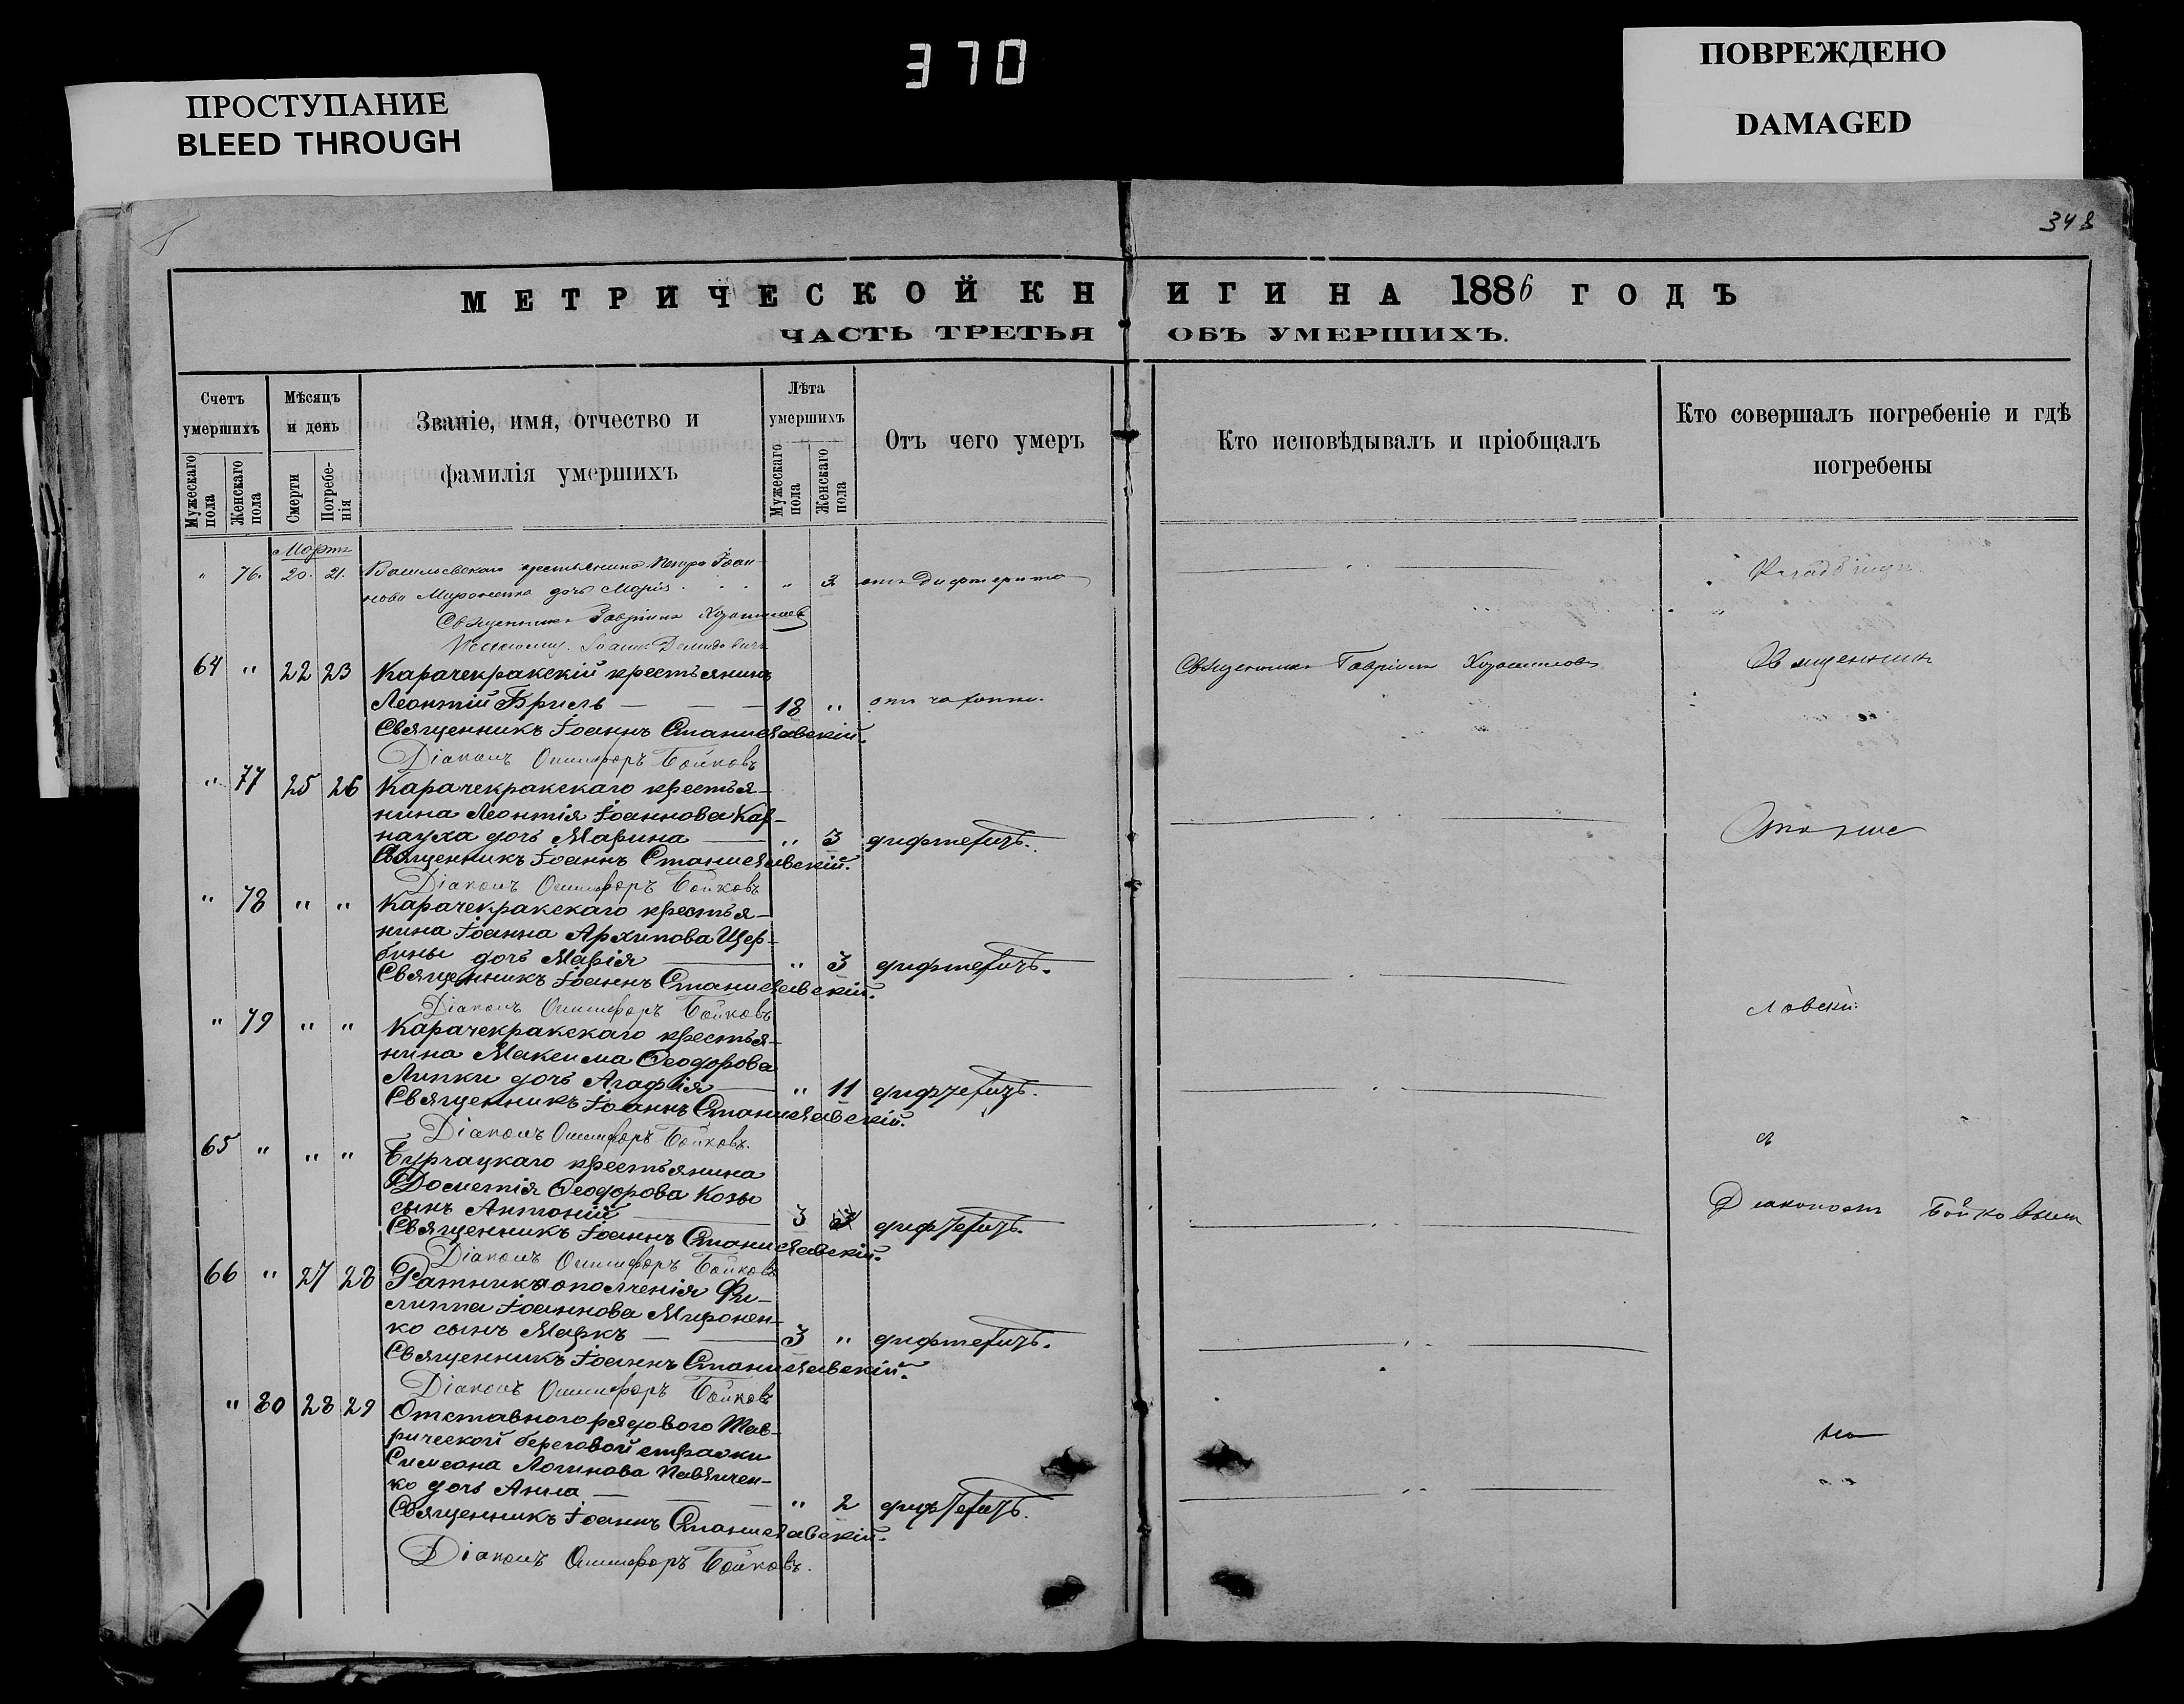 370
ПРОСТУПАНИЕ
BLEED THROUGH
ПОВРЕЖДЕНО
DAMAGED
348
МЕТРИЧЕСКОЙ КНИГИ НА 1886 ГОДЪ
ЧАСТЬ ТРЕТЬЯ ОБЪ УМЕРШИХЪ.
Счетъ умершихъ
Мужескаго пола
Женскаго пола
Мѣсяцъ и день
Смерти
Погребе-
нія
Званіе, имя, отчество и
фамилія умершихъ
Лѣта умершихъ
Мужескаго пола
Женскаго пола
Отъ чего умеръ
Кто исповѣдывалъ и пріобщалъ
Кто совершалъ погребеніе и гдѣ
погребены
Мартъ
" 76. 20. 21. Васильевскаго крестьянина Петра Іоан-
нова Мироненка дочь Марія " 3 отъ дифтерита
Священникъ Гавріилъ
Іоаннъ Демидовичъ
64 " 22 23 Карачекракскій крестьянинъ Священникъ Гавріилъ Священникъ
Леонтій Бриль 18 " отъ чахотки.
Священникъ Іоаннъ Станиславскій.
Діаконъ Онисифоръ Бойковъ
" 77 25 26 Карачекракскаго крестья-
нина Леонтія Іоаннова Кар-
науха дочь Марина " 3 дифтеритъ.
Священникъ Іоаннъ Станиславскій.
Діаконъ Онисифоръ Бойковъ
" 78 " " Карачекракскаго крестья-
нина Іоанна Архипова Щер-
бины дочь Марія " 3 дифтеритъ.
Священникъ Іоаннъ Станиславскій.
Діаконъ Онисифоръ Бойковъ
ловскій
" 79 " " Карачекракскаго крестья-
нина Максима Ѳеодорова
Липки дочь Агафія " 11 дифтеритъ.
Священникъ Іоаннъ Станиславскій.
Діаконъ Онисифоръ Бойковъ.
съ
65 " " " Бурчацкаго крестьянина
Дометія Ѳеодорова Козы
сынъ Антоній 3 дифтеритъ.
Діакономъ Бойковымъ
Священникъ Іоаннъ Станиславскій.
Діаконъ Онисифоръ Бойковъ
66 " 27 28 Ратника ополченія Фи-
липпа Іоаннова Миронен-
ко сынъ Маркъ 3 " дифтеритъ.
Священникъ Іоаннъ Станиславскій.
Діаконъ Онисифоръ Бойковъ
" 80 28 29 Отставного рядового Тав-
рической береговой стражи
на
Симеона Логинова Павличен-
ко дочь Анна " 2 дифтеритъ.
Священникъ Іоаннъ Станиславскій.
Діаконъ Онисифоръ Бойковъ.